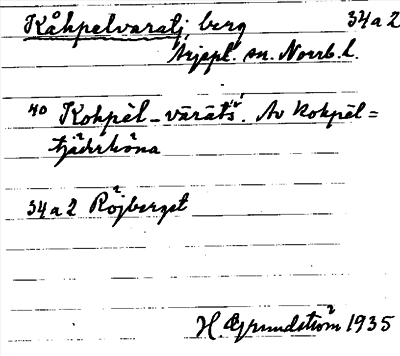 Kåhpelvaratj, berg 34a2
Arjepl. sn. Norrb. l.
40 Kohpèl-vārāts. Av kohpèl=
tjäderhöna
34a2 Röjberget
H. Grundström 1935